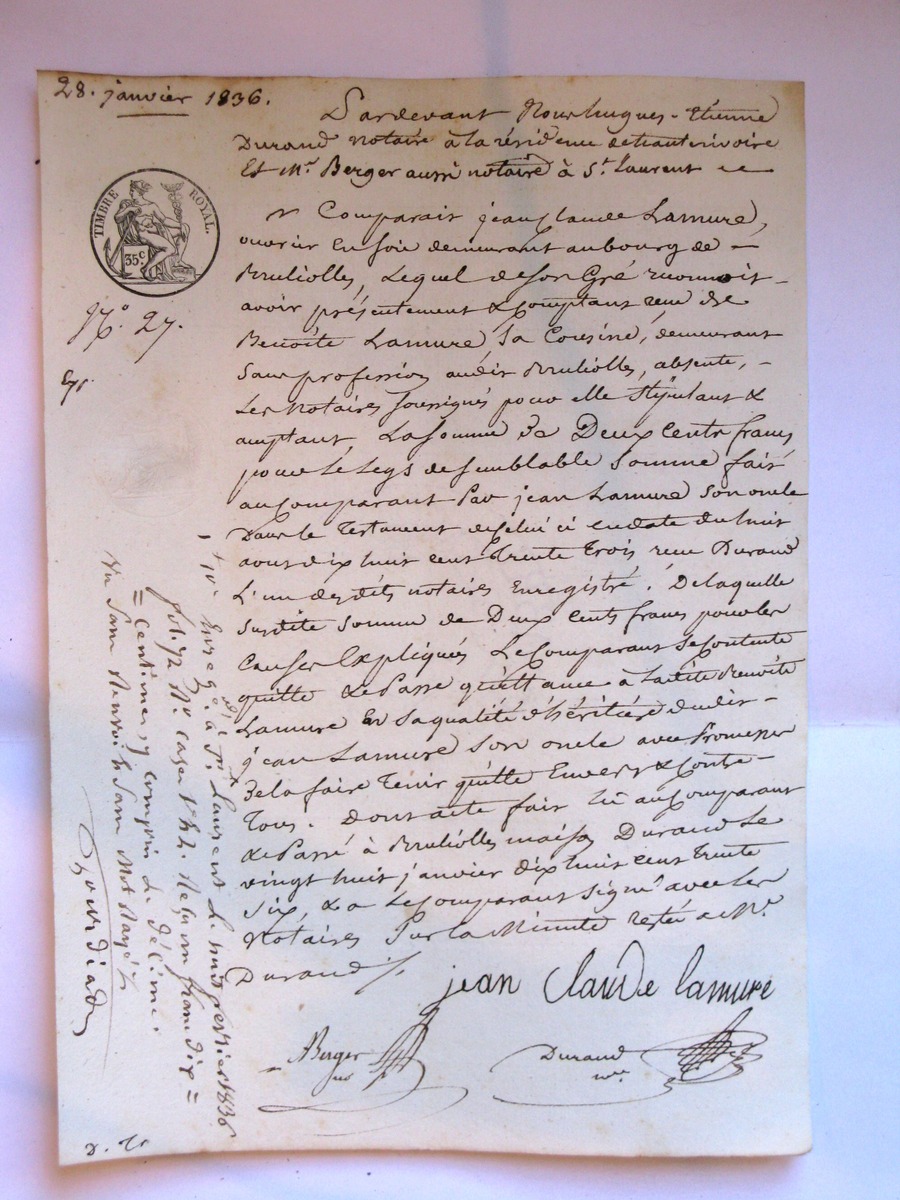 28. janvier 1836.
Pardevant Nous hugues-Etienne
Durand notaire à la résidence de hauterivoire
Et Mr. Berger aussi notaire à St. laurent
TIMBRE ROYAL.
35c.
No. 27.
Comparait jean Claude Lamure,
ouvrier En soie demeurant au bourg de -
Bruliolles, Lequel de son Gré reconnoit -
avoir présentement & Comptant reçu de
Benoîte Lamure Sa Cousine, demeurant
Sans profession audit Brulliolles, absente, -
Les Notaires soussignés pour elle Stipulant &
acceptant, La Somme de Deux Cents francs
pour Le Legs de semblable Somme fait
au Comparant Par jean Lamure Son oncle
Dans Le Testament de Celui ci en date du huit
aout dix huit cent Trente Trois reçu Durand
L'un desdits notaires Enregistré. De laquelle
Susdite Somme de Deux Cents francs pour les
Causes Expliquées Le Comparant Se Contente
quitte & Passe quittance à Ladite Benoite
Lamure En Sa qualité d'héritière dudit -
jean Lamure Son oncle avec Promesse
De la faire Tenir quitte Envers & Contre -
Tous. Dont acte fait Lû au Comparant
& Passé à Brulliolles maison Durand Le
vingt huit janvier dix huit cent trente
Six, & a Le Comparant Signé avec les
Notaires Sur la Minute restée a Mr.
Durand
jean Claude lamure
Berger
nre
Durand
nre
Enregé. à St. Laurent Le huit février 1836
fol. 72 Ro. case 1re & 2. Reçu un franc dix =
= Centimes y compris le décime.
Un Sans Renvoi & Sans Mot Rayé